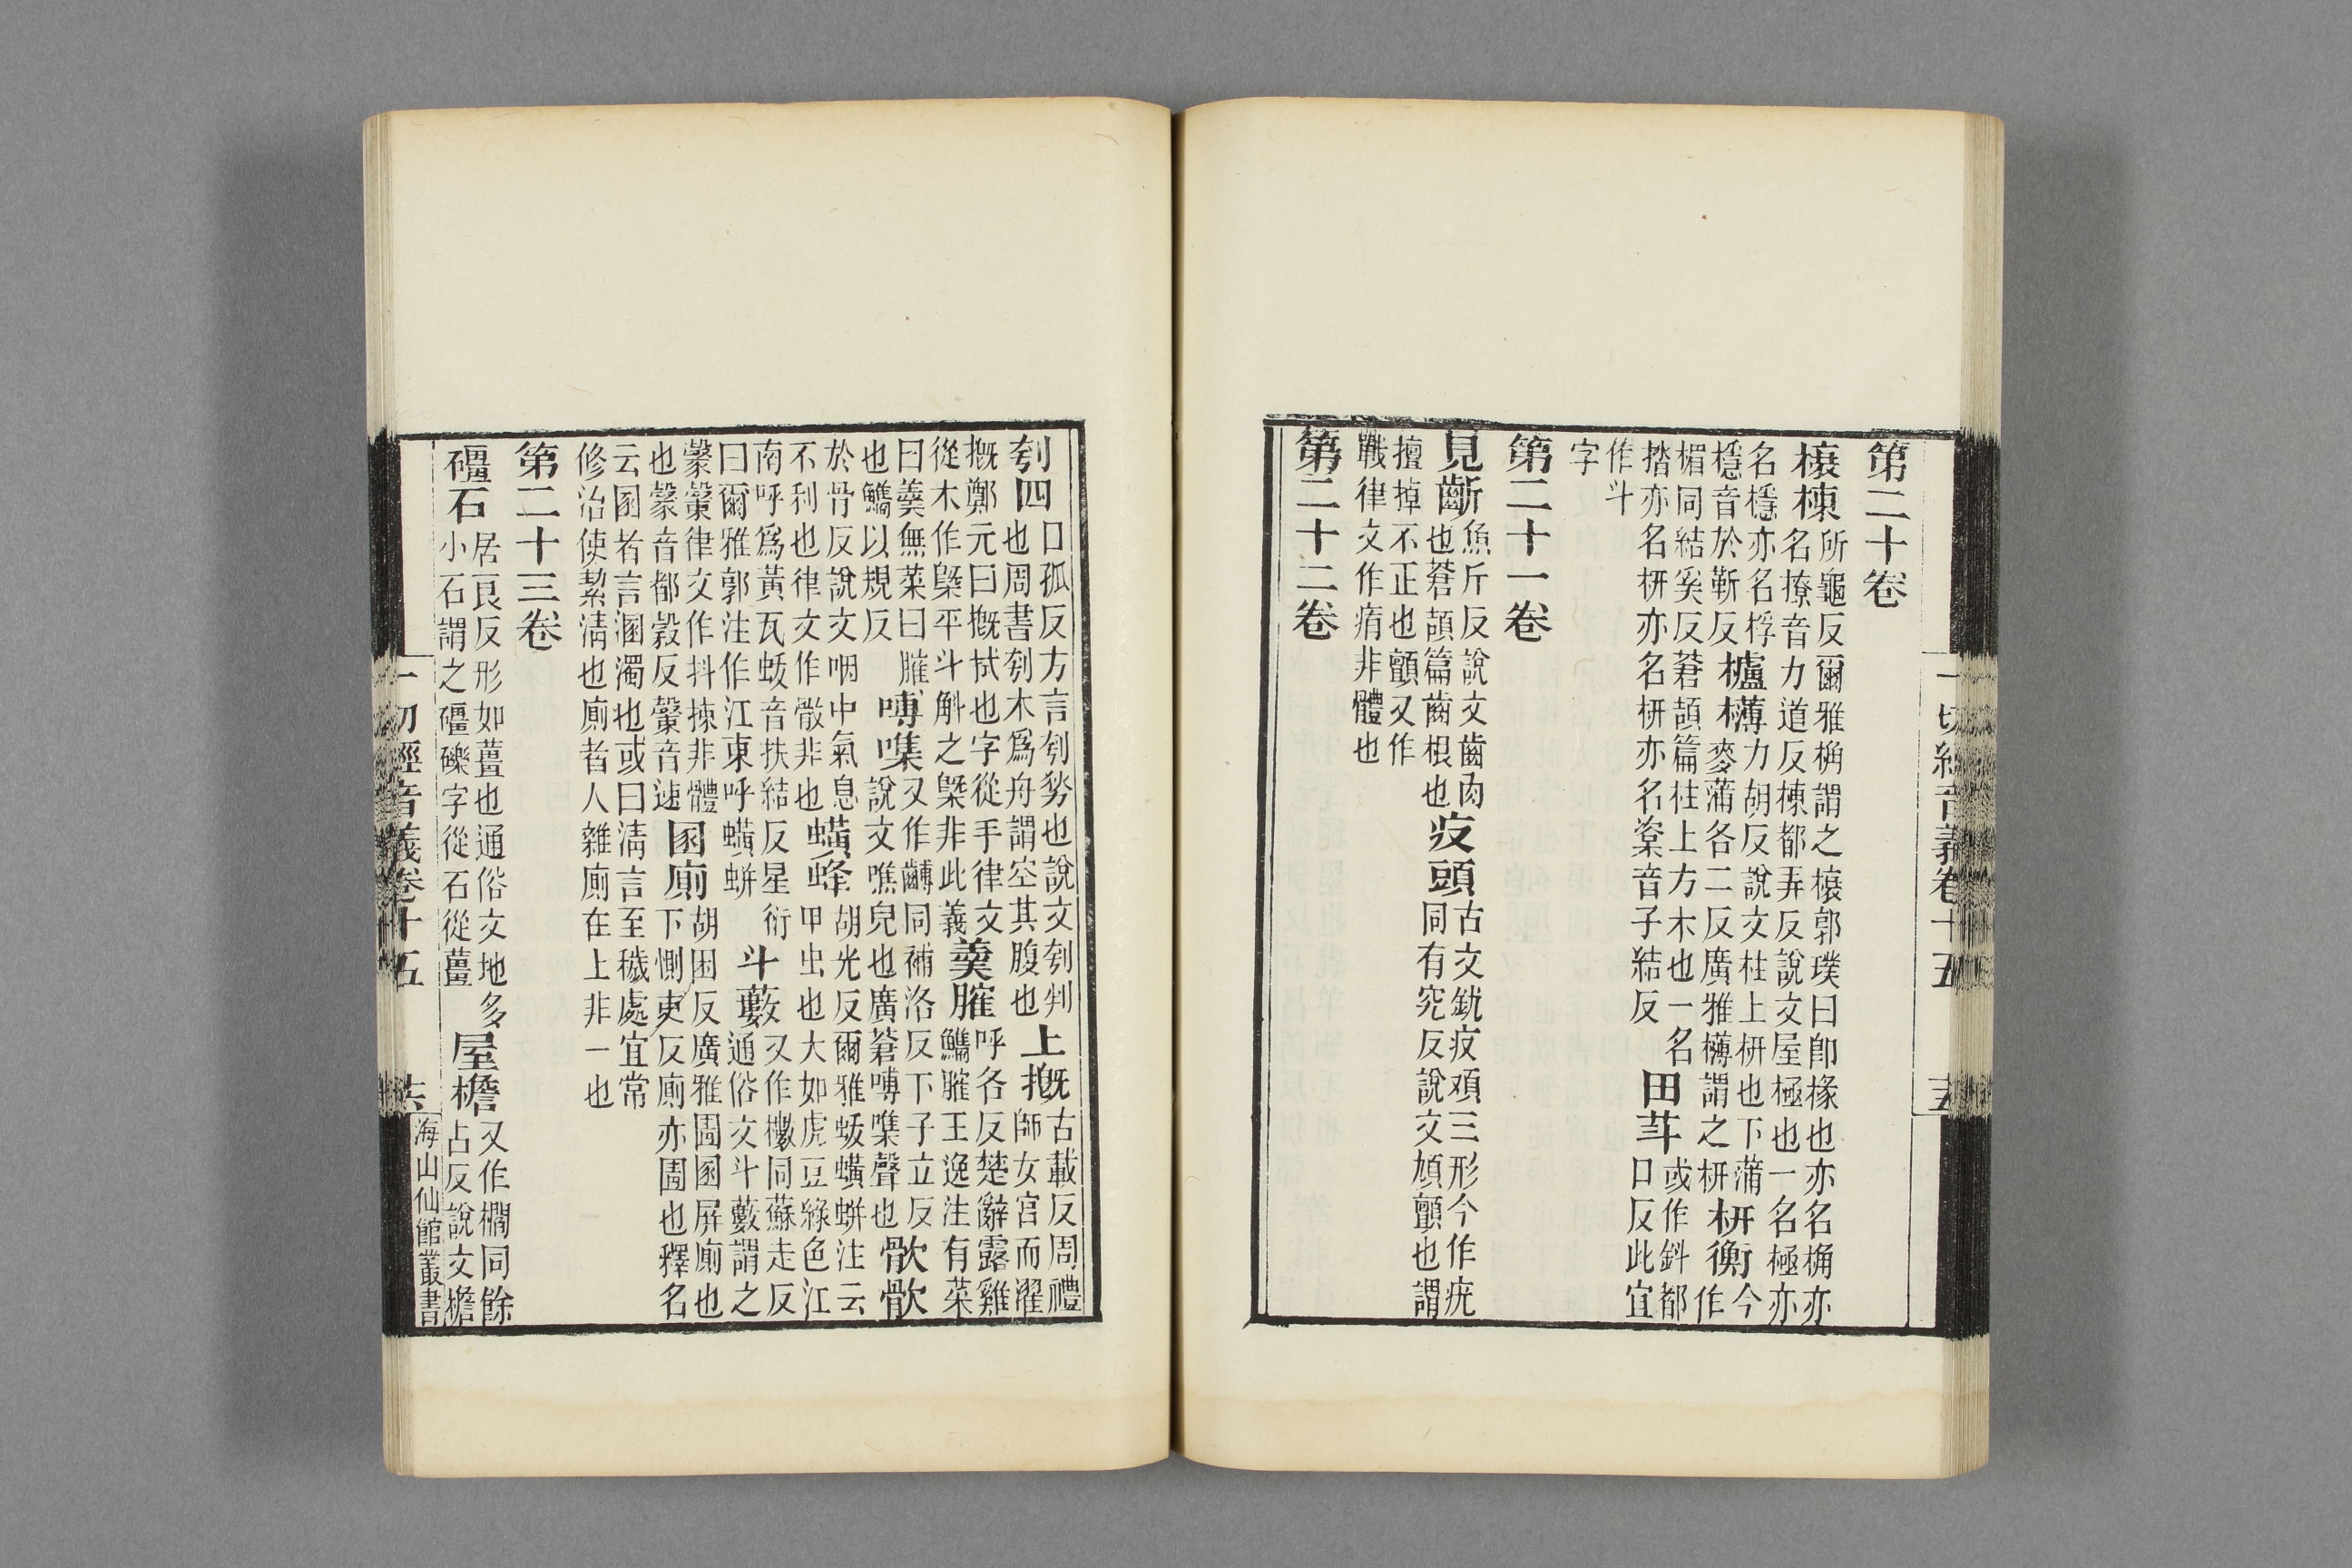 一切經音義卷十五　十五
第二十卷
榱棟 所龜反爾雅桷謂之榱郭璞曰卽椽也亦名桷亦
名橑音力道反棟都弄反說文屋極也一名極亦
名檼亦名桴
檼音於靳反
櫨欂 力胡反說文柱上枅也下蒲
麥蒲各二反廣雅欂謂之枅
枅衡 今
作
楣同結奚反蒼頡篇柱上方木也一名
揩亦名枅亦名枅亦名楶音子結反
田 或作䤱都
口反此宜
作斗
字
第二十一卷
見齗 魚斤反說文齒肉
也蒼頡篇齒根也
疢頭 古文疢頑三形今作疣
同有究反說文頄顫也謂
擅掉不正也顫又作
戰律文作痟非體也
第二十二卷
刳四 口孤反方言刳剺也說文刳判
也周書刳木爲舟謂空其腹也
上摡 古載反周禮
師女宮而濯
摡鄭元曰摡拭也字從手律文
從木作槩平斗斛之槩非此義
羹臛 呼各反楚辭露雞
鸐臛王逸注有菜
曰羹無菜曰臛
也鸐以規反
嚩㗱 又作同補洛反下子立反
說文噍皃也廣蒼嚩㗱聲也
㱁㱁
於骨反說文咽中氣息
不利也律文作㪚非也
蟥蜂 胡光反爾雅蛂蟥蛢注云
甲虫也大如虎豆綠色江
南呼爲黃瓦蛂音扶結反星衍
曰爾雅郭注作江東呼蟥蛢
斗藪 又作櫢同蘇走反
通俗文斗藪謂之
律文作抖揀非體
也音都穀反音速
圂廁 胡困反廣雅圊圂屏廁也
下惻吏反廁亦圊也釋名
云圂者言溷濁也或曰淸言至穢處宜常
修治使絜淸也廁者人雜廁在上非一也
第二十三卷
礓石 居良反形如薑也通俗文地多
小石謂之礓礫字從石從薑
屋檐 又作櫩同餘
占反說文檐
一切經音義卷十五　十六　海山仙館叢書